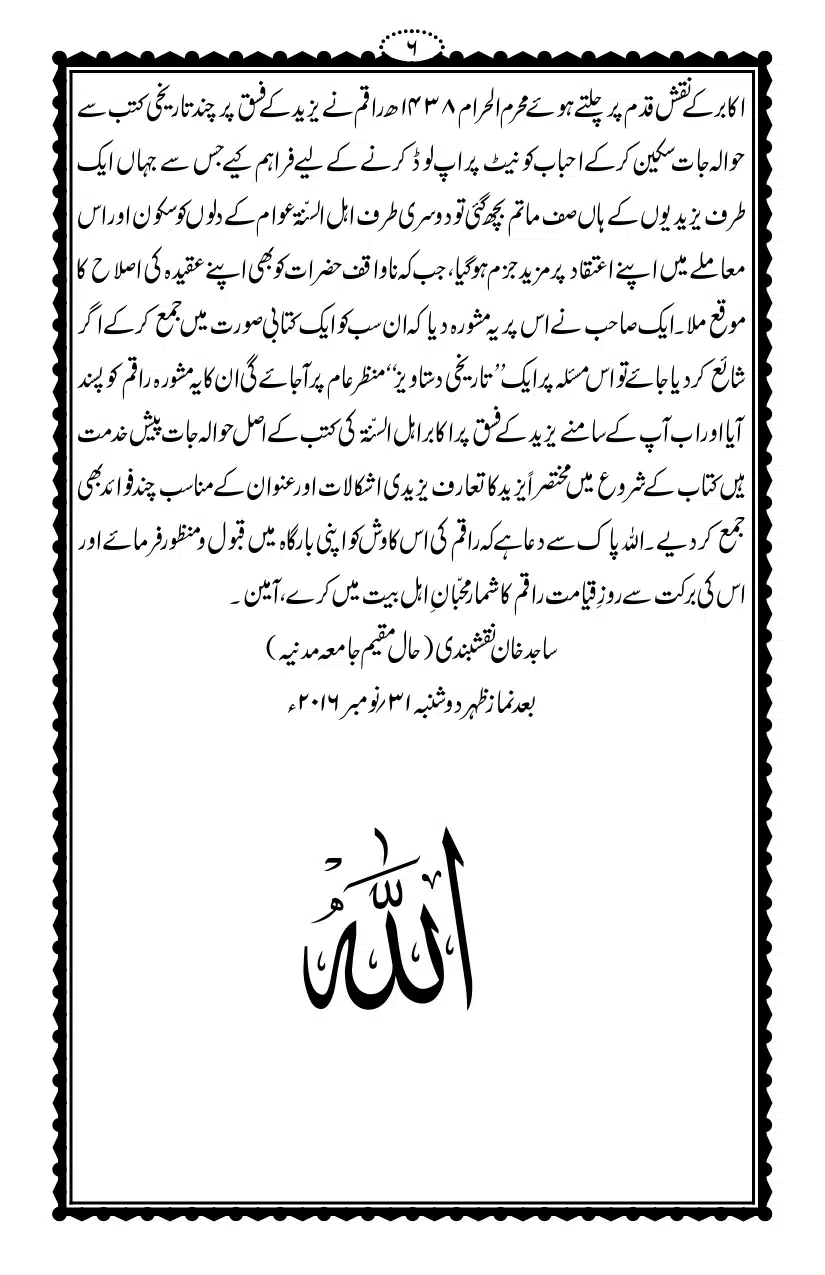 ۶
اکابر کے نقش قدم پر چلتے ہوئے محرم الحرام ۱۴۳۸ھ راقم نے یزید کے فسق پر چند تاریخی کتب سے
حوالہ جات سکین کر کے احباب کو نیٹ پر اپ لوڈ کرنے کے لیے فراہم کیے جس سے جہاں ایک
طرف یزیدیوں کے ہاں صف ماتم بچھ گئی تو دوسری طرف اہل السنّۃ عوام کے دلوں کو سکون اور اس
معاملے میں اپنے اعتقاد پر مزید جزم ہوگیا، جب کہ ناواقف حضرات کو بھی اپنے عقیدہ کی اصلاح کا
موقع ملا۔ ایک صاحب نے اس پر یہ مشورہ دیا کہ ان سب کو ایک کتابی صورت میں جمع کر کے اگر
شائع کر دیا جائے تو اس مسئلہ پر ایک ’’تاریخی دستاویز‘‘ منظر عام پر آجائے گی ان کا یہ مشورہ راقم کو پسند
آیا اور اب آپ کے سامنے یزید کے فسق پر اکابر اہل السنّۃ کی کتب کے اصل حوالہ جات پیش خدمت
ہیں کتاب کے شروع میں مختصراً یزید کا تعارف یزیدی اشکالات اور عنوان کے مناسب چند فوائد بھی
جمع کر دیے۔ اللہ پاک سے دعا ہے کہ راقم کی اس کاوش کو اپنی بارگاہ میں قبول و منظور فرمائے اور
اس کی برکت سے روزِ قیامت راقم کا شمار محبّانِ اہل بیت میں کرے، آمین۔
ساجد خان نقشبندی (حال مقیم جامعہ مدنیہ)
بعد نماز ظہر دوشنبہ ۳۱/نومبر ۲۰۱۶ء
اللّٰہُ